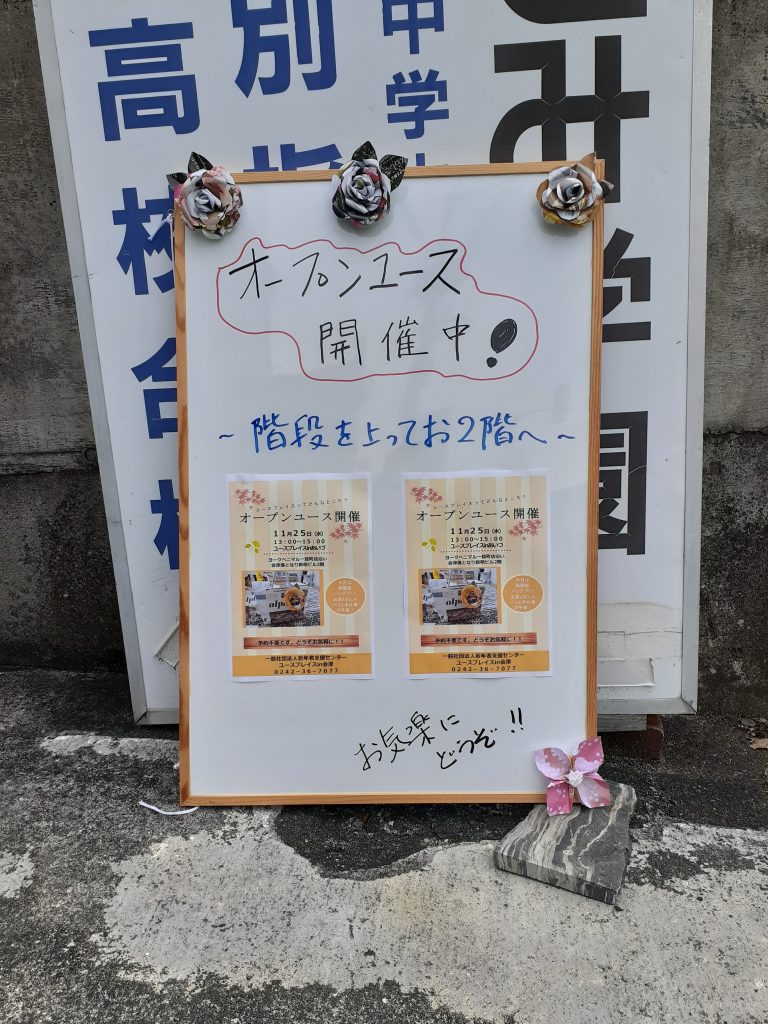 高校合格
個別指
中学
み学園
オープンユース
開催中!
～階段を上ってお2階へ～
ユースプレイスってどんなところ？
オープンユース開催
11月25日(水)
13:00～15:00
ユースプレイスinあいづ
ヨークベニマル一箕町店沿い
会津藩となり新明ビル2階
予約不要です。どうぞお気軽に！！
一般社団法人若年者支援センター
ユースプレイスin会津
0242-36-7077
ユースプレイスってどんなところ？
オープンユース開催
11月25日(水)
13:00～15:00
ユースプレイスinあいづ
ヨークベニマル一箕町店沿い
会津藩となり新明ビル2階
予約不要です。どうぞお気軽に！！
一般社団法人若年者支援センター
ユースプレイスin会津
0242-36-7077
お気楽に
どうぞ!!